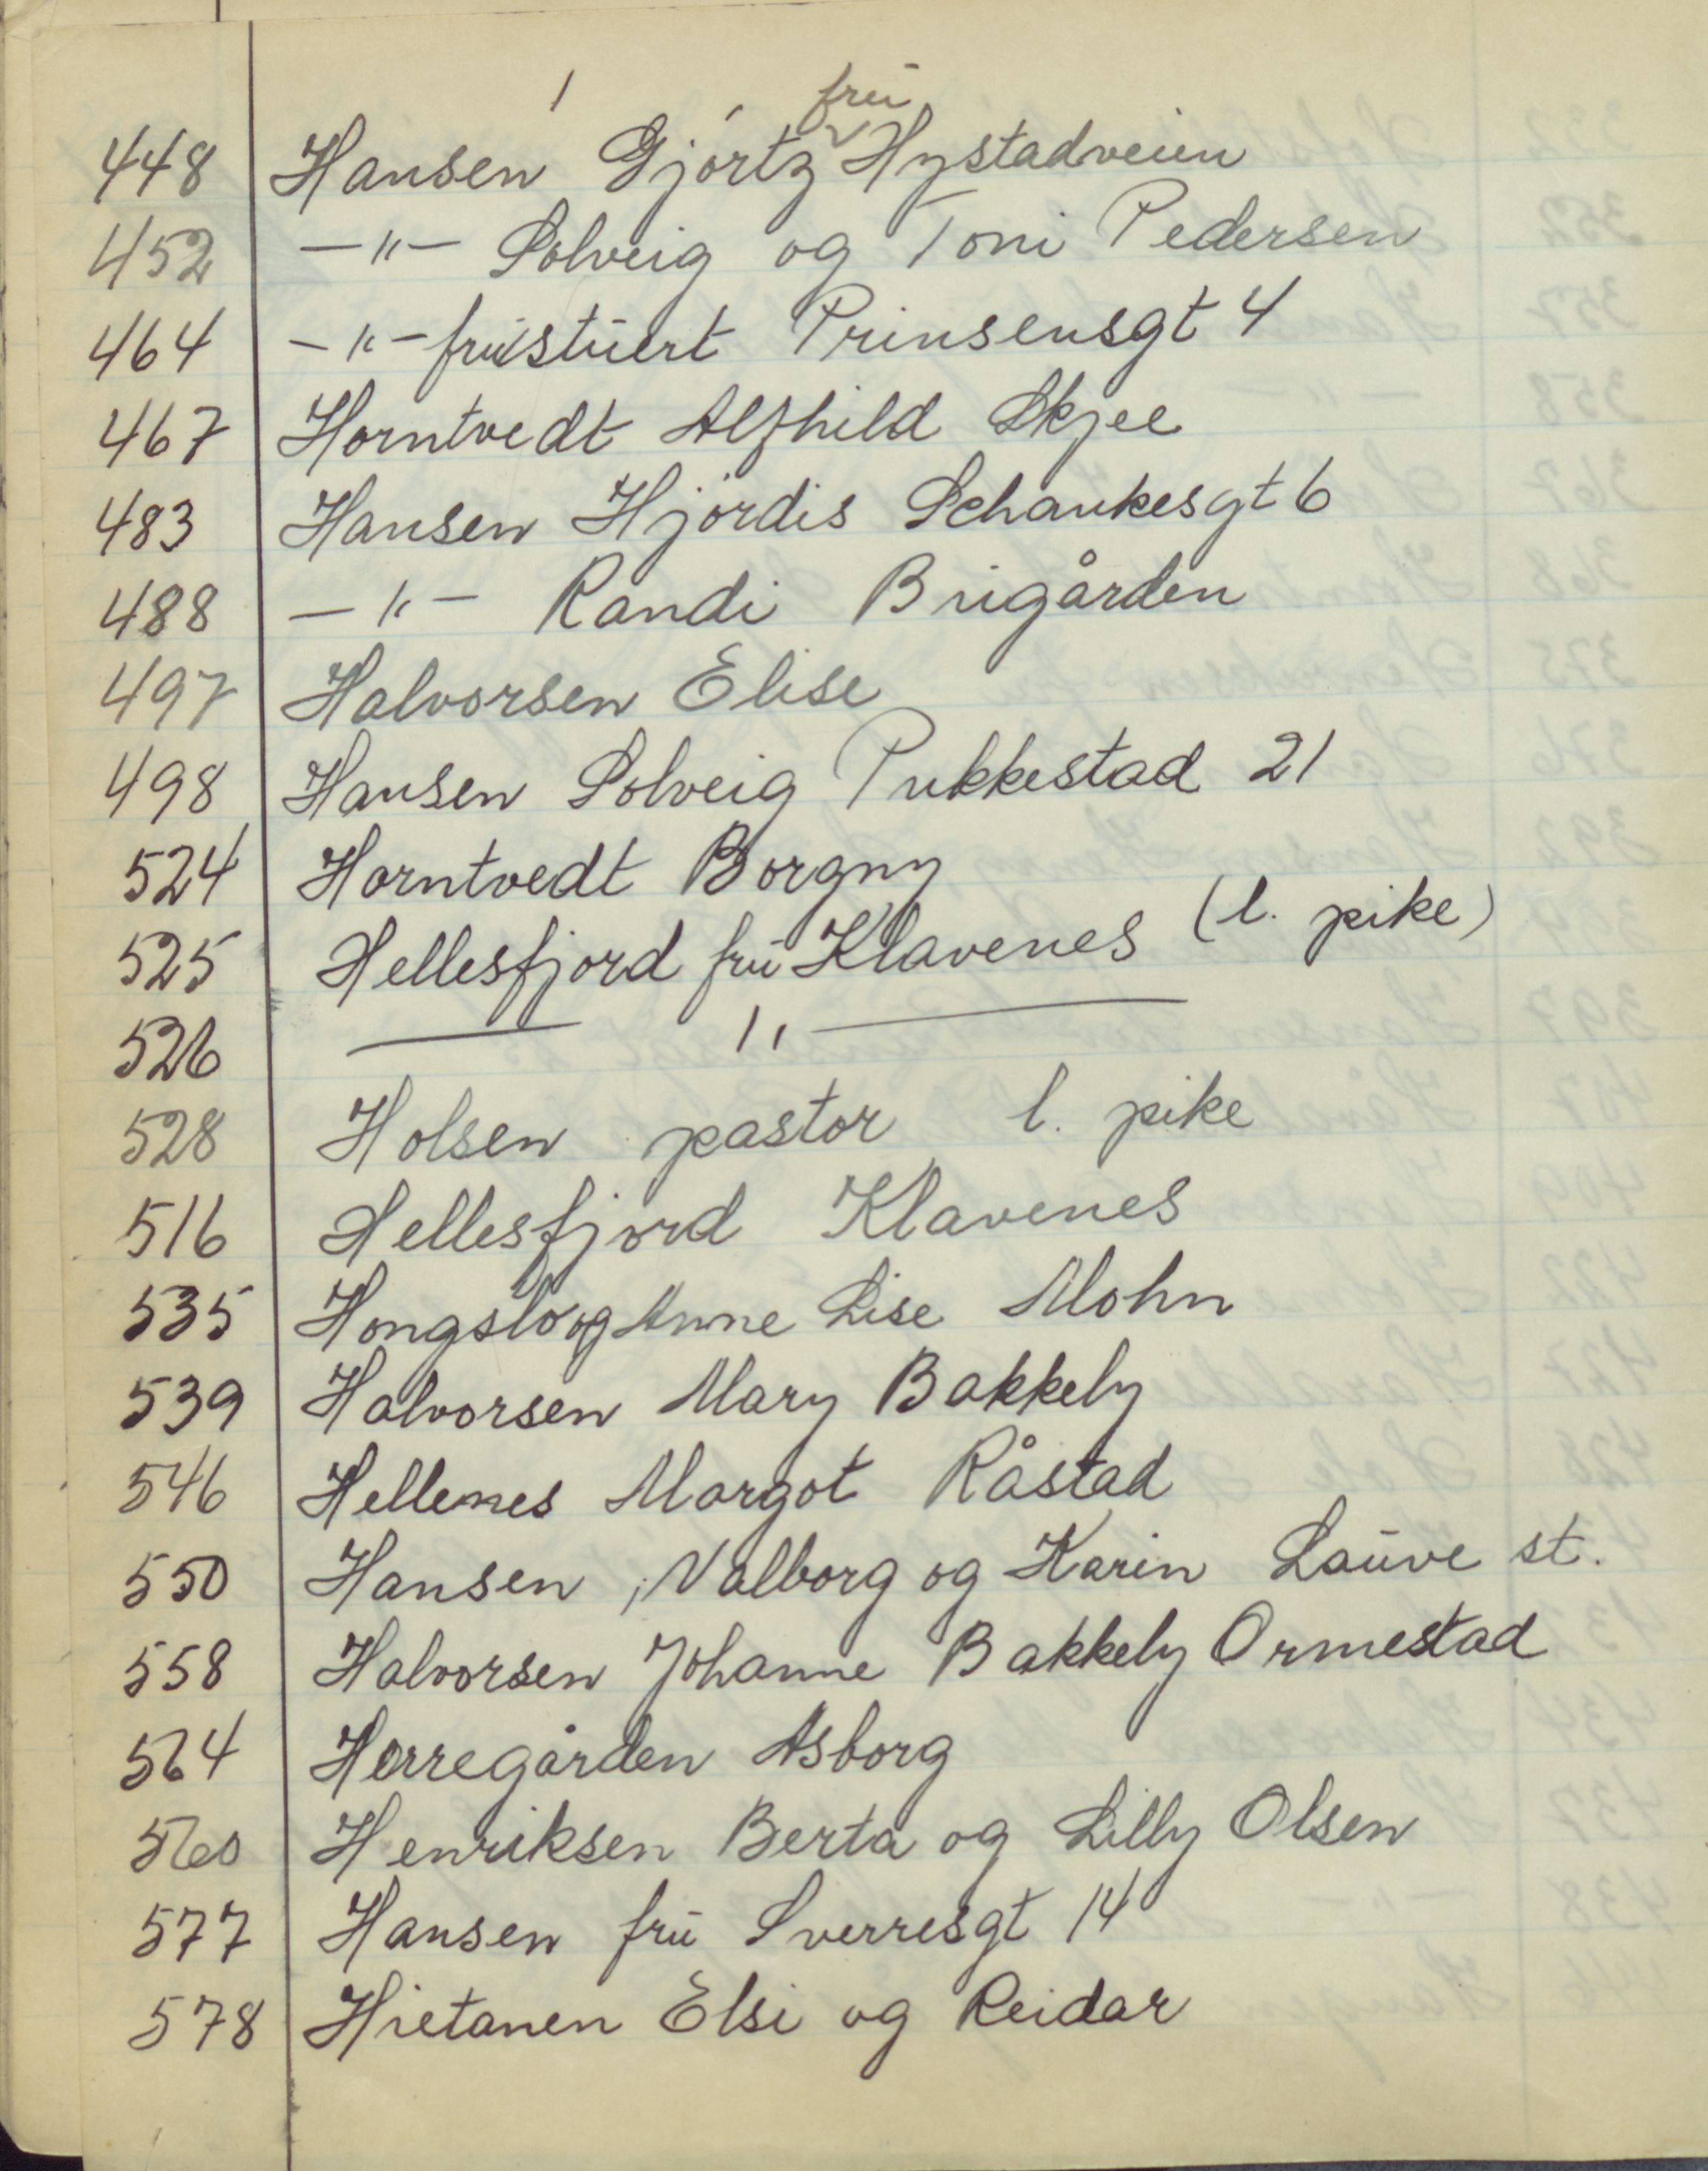 frú
448 Hansen Gjórtz Hystadveien
452 —"— Solveig og Toni Pedersen
464 —"— frú stúert Prinsensgt 4
467 Horntvedt Alfhild Skjee
483 Hansen Hjørdis Schankesgt 6
488 —"— Randi Brigården
497 Halvorsen Elise
498 Hansen Solveig Pukkestad 21
524 Horntvedt Borgny
525 Hellesfjord frú Klavenes (l. pike)
526 —"—
528 Holsen pastor l. pike
516 Hellesfjord Klavenes
535 Hongslo og Anne Lise Mohn
539 Halvorsen Mary Bakkely
546 Hellenes Margot Råstad
550 Hansen, Valborg og Karin Lauve st.
558 Halvorsen Johanne Bakkely Ormestad
564 Herregården Asborg
560 Henriksen Berta og Lilly Olsen
577 Hansen frú Sverresgt 14
578 Hietanen Elsi og Reidar